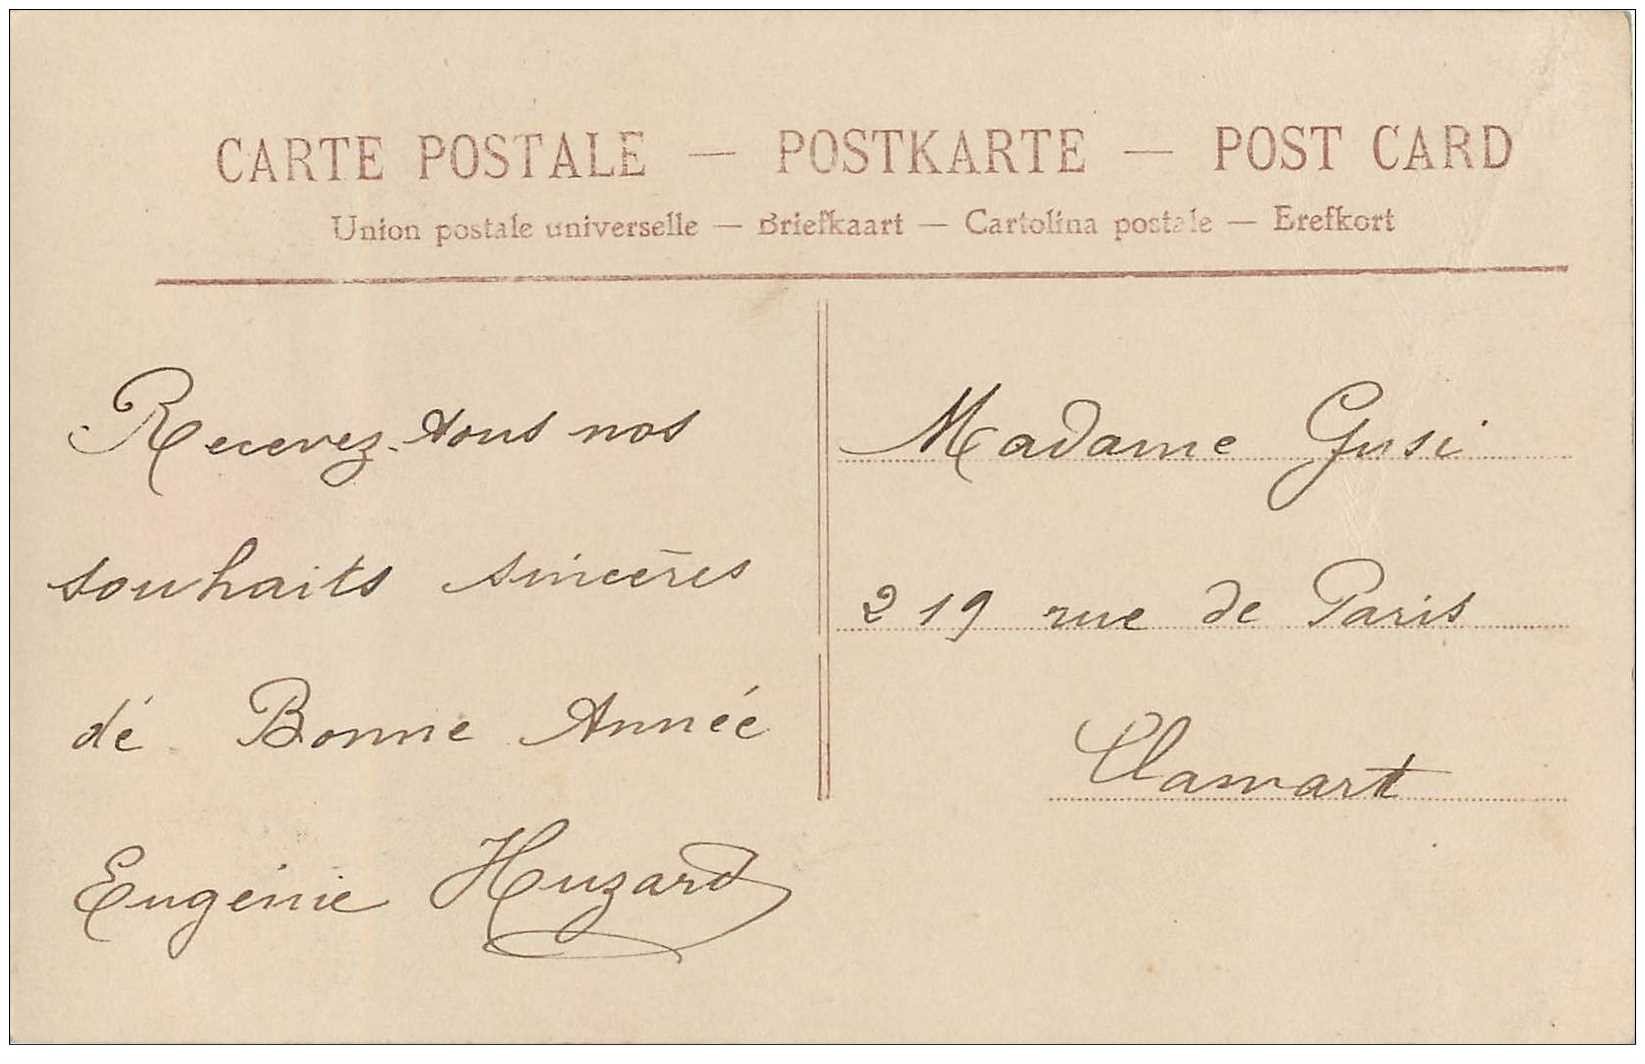 CARTE POSTALE — POSTKARTE — POST CARD
Union postale universelle — Briefkaart — Cartolina postale — Brefkort
Recevez-tous nos
souhaits sincères
dé Bonne Année
Eugénie Huzard
Madame Gusi
219 rue de Paris
Clamart